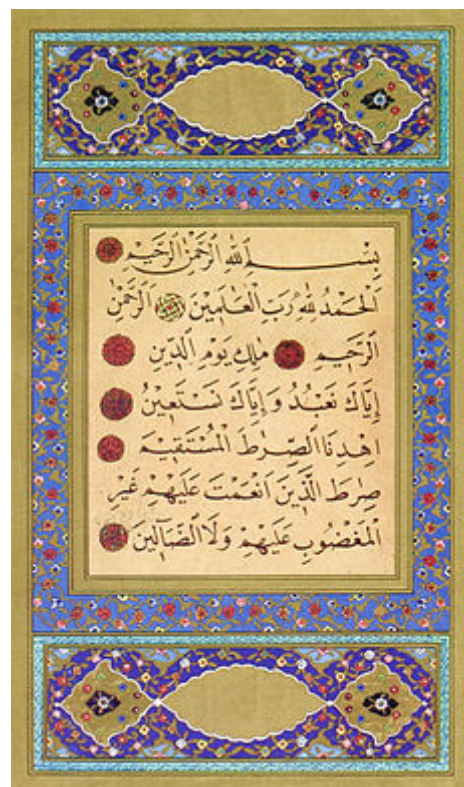 بِسْمِ ٱللهِ ٱلرَّحْمٰنِ ٱلرَّحِيمِ
اَلْحَمْدُ لِلهِ رَبِّ الْعَالَمِينَ اَلرَّحْمٰنِ
الرَّحِيمِ مٰلِكِ يَوْمِ الدِّينِ
إِيَّاكَ نَعْبُدُ وَإِيَّاكَ نَسْتَعِينُ
اِهْدِنَا الصِّرٰطَ الْمُسْتَقِيمَ
صِرٰطَ الَّذِينَ اَنْعَمْتَ عَلَيْهِمْ غَيْرِ
الْمَغْضُوبِ عَلَيْهِمْ وَلَا الضَّٓالِّينَ